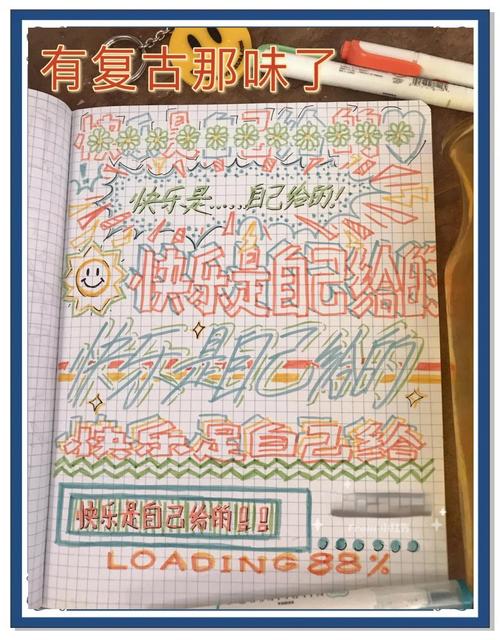 有复古那味了
快乐是自己给的
快乐是.....自己给的!
快乐是自己给的
快乐是自己给的
快乐是自己给
快乐是自己给的!!!
LOADING 88%